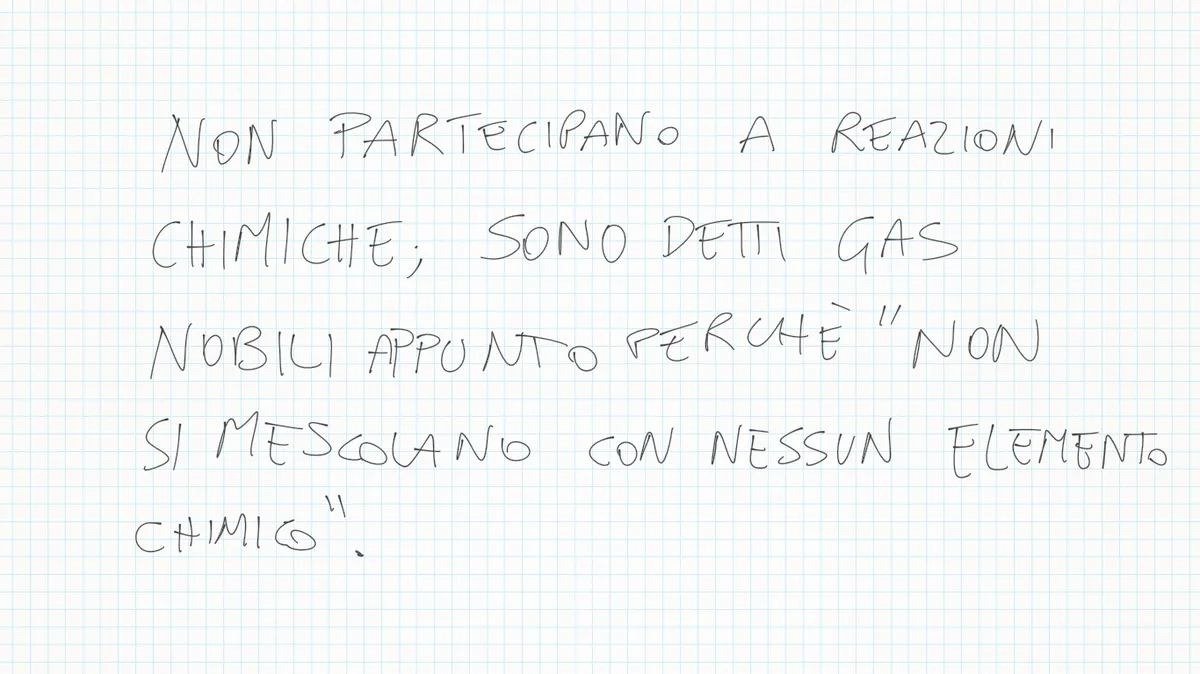 NON PARTECIPANO A REAZIONI
CHIMICHE; SONO DETTI GAS
NOBILI APPUNTO PERCHÈ "NON
SI MESCOLANO CON NESSUN ELEMENTO
CHIMICO".